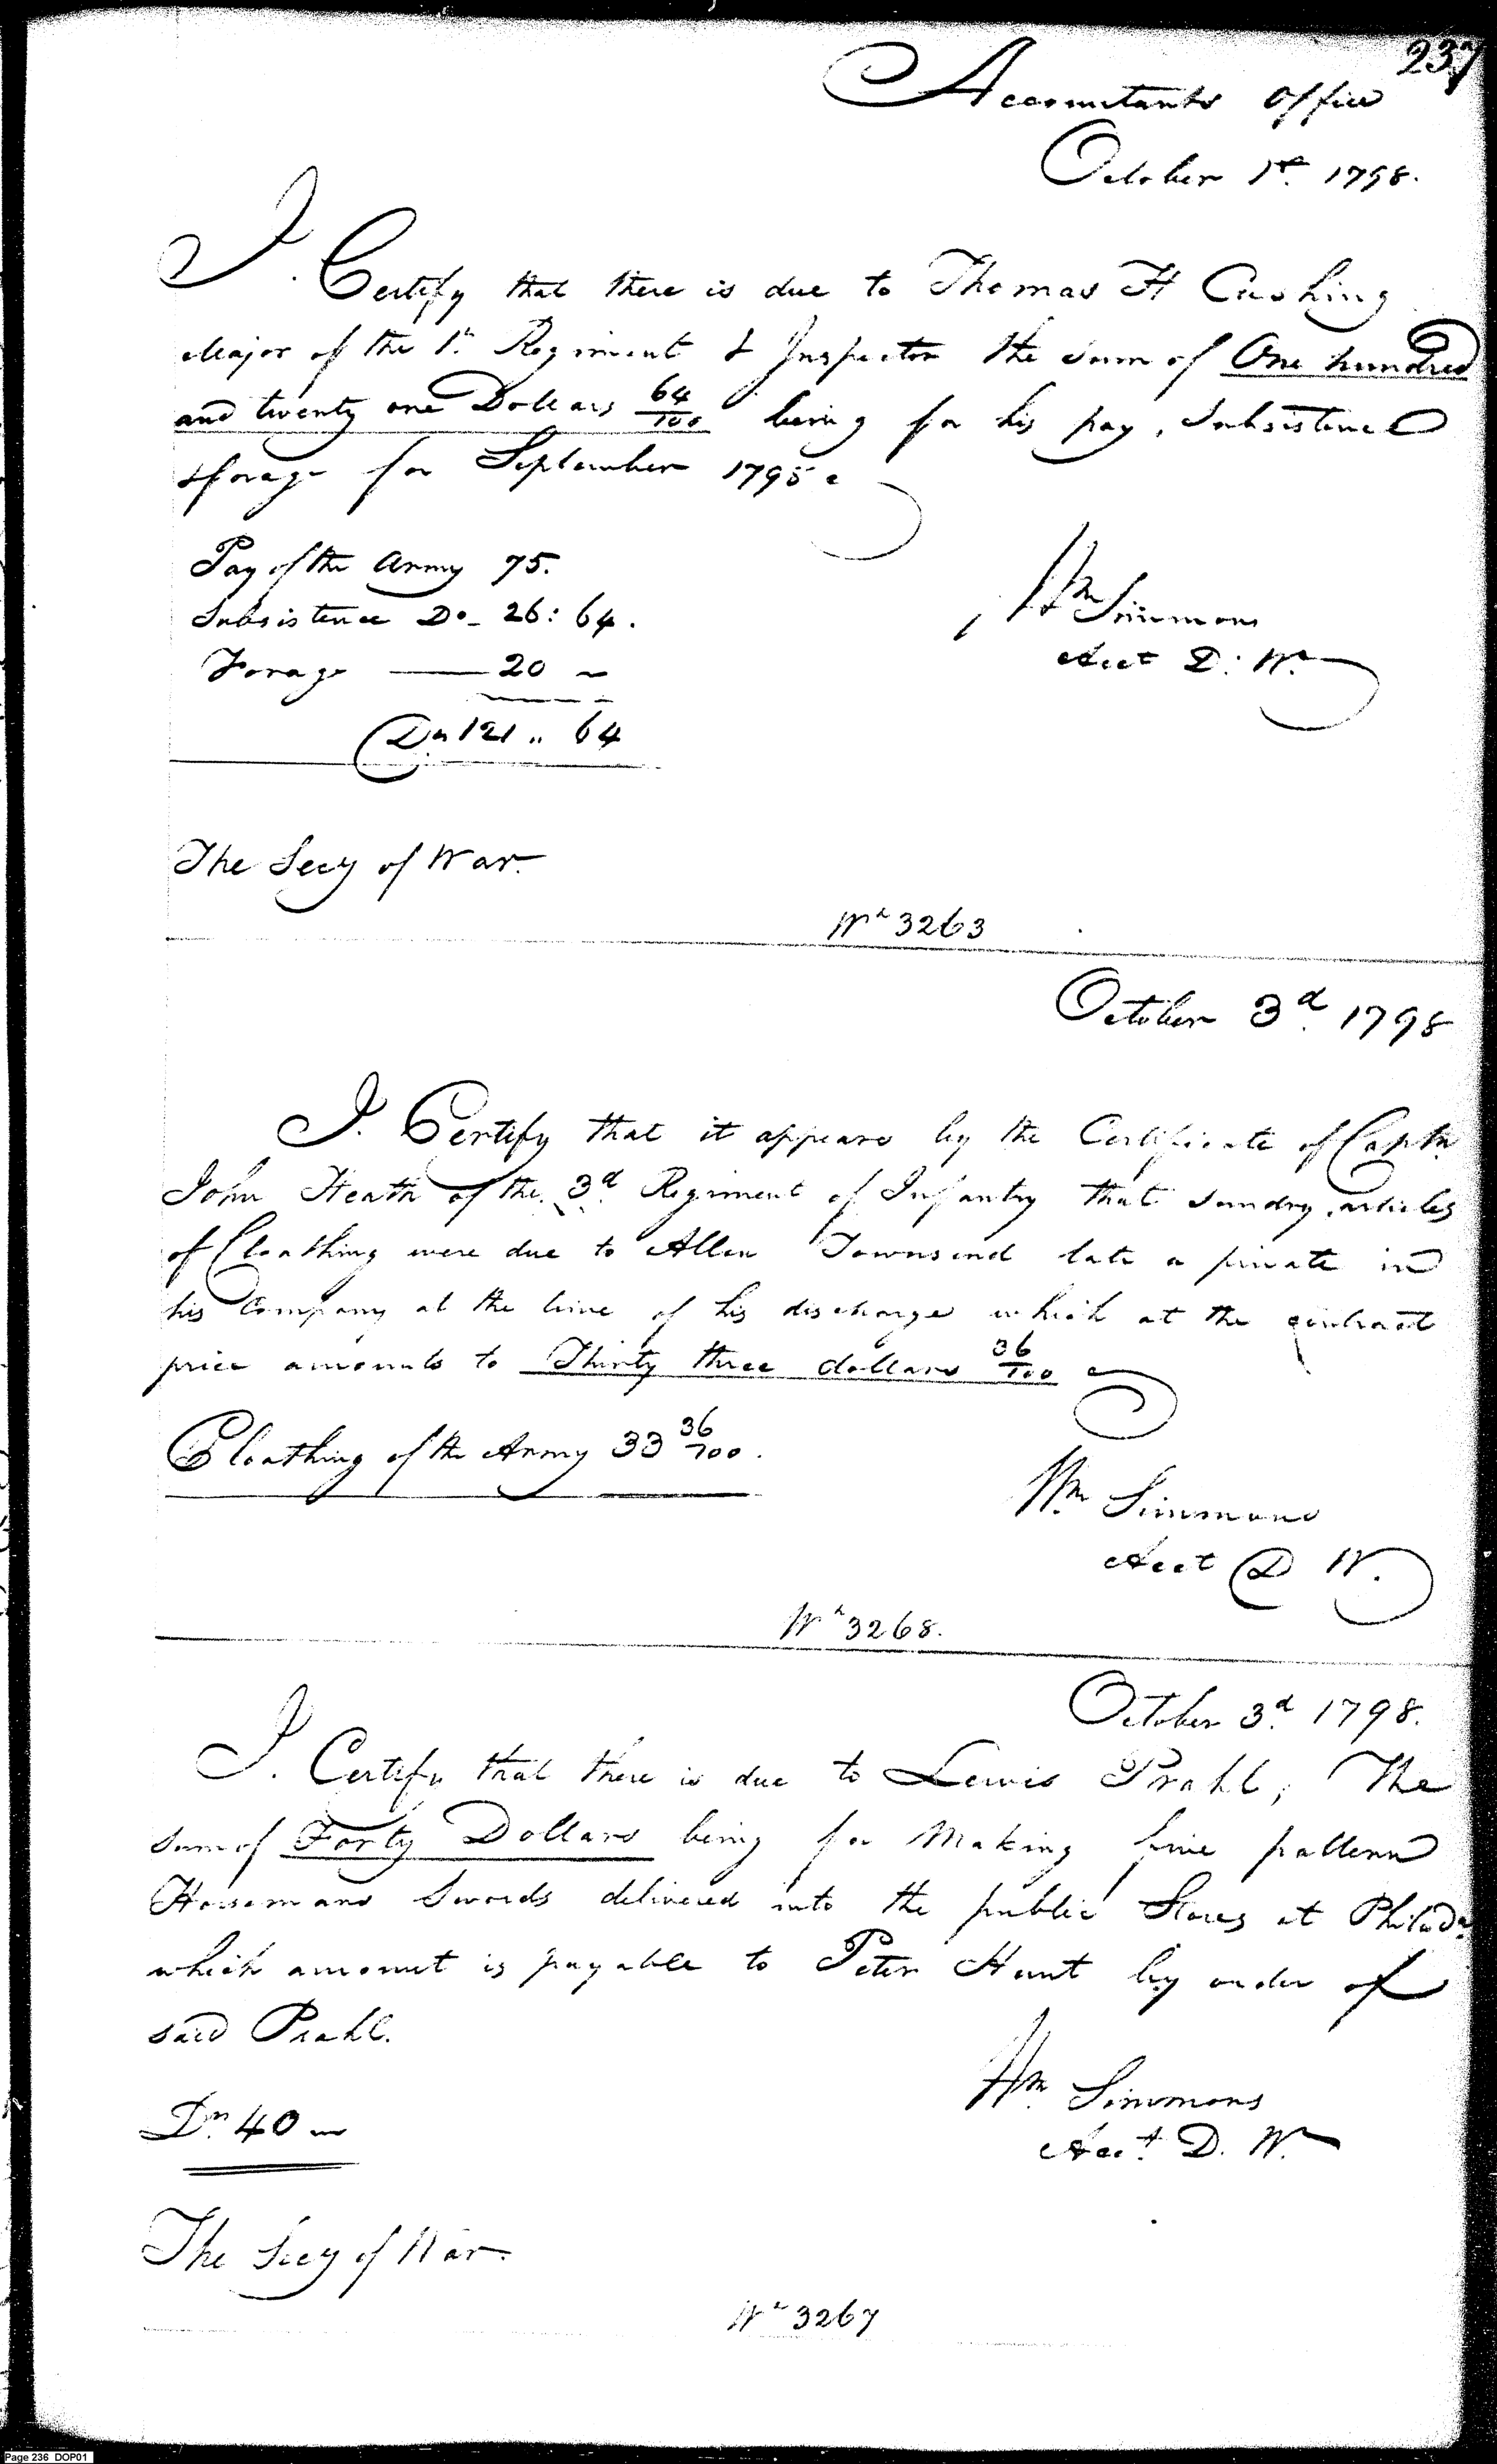 237
Accountants Office
October 1st. 1798.
I. Certify that there is due to Thomas H Cushing
Major of the 1st. Regiment & Inspector the sum of One hundred
and twenty one Dollars 64/100 being for his pay, Subsistence
& forage for September 1798
Pay of the Army 75.
Subsistence Do_ 26: 64.
Forage —— 20 ~
Drs 121 " 64
Wm Simmons
Acct D: W.
The Secy of War.
Wt 3263
October 3d. 1798
I. Certify that it appears by the Certificate of Captn
John Heath of the 3d. Regiment of Infantry that sundry articles
of Cloathing were due to Allen Townsend late a private in
his Company at the time of his discharge which at the contract
price amounts to Thirty three dollars 36/100
Cloathing of the Army 33 36/100.
Wm Simmons
Acct D W.
Wt 3268.
October 3d. 1798.
I. Certify that there is due to Lewis Prahl, The
sum of Forty Dollars being for Making five pattern
Horsemans Swords delivered into the public Stores at Philada.
which amount is payable to Peter Hunt by order of
said Prahl.
Drs. 40
Wm. Simmons
Acct. D. W.
The Secy of War.
Wt 3267
Page 236 DOP01